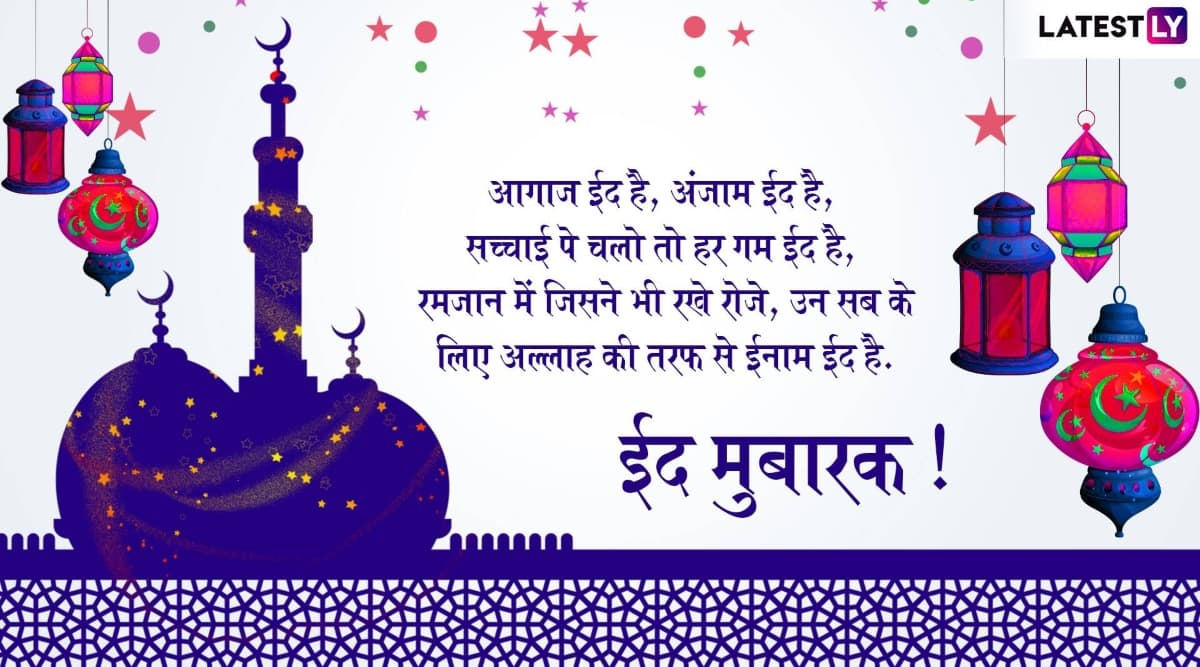 LATESTLY
आगाज ईद है, अंजाम ईद है,
सच्चाई पे चलो तो हर गम ईद है,
रमजान में जिसने भी रखे रोजे, उन सब के
लिए अल्लाह की तरफ से ईनाम ईद है.
ईद मुबारक !